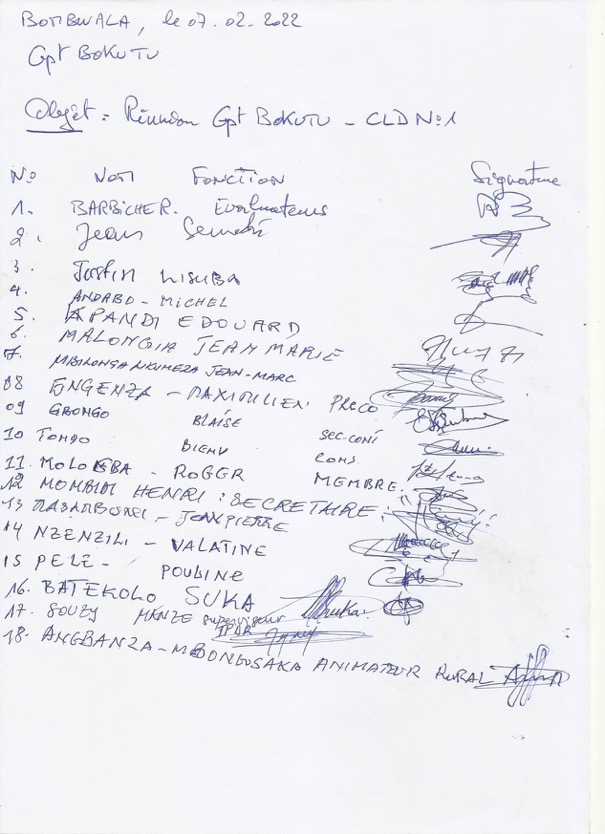 BOMBWALA, le 07.02.2022
Gpt BOKUTU
Objet : Réunion Gpt BOKUTU - CLD No1
No NOM FONCTION Signature
1. BARBICHER. Evaluateurs
2. Jean
3. Justin LISUBA
4. ANDABO - MICHEL
5. APANDI EDOUARD
6. MALONGIA JEAN MARIE
7. JEAN-MARC
08 ENGENZA - MAXIMILIEN PRECO
09 GBONGO BLAISE SEC-CONI
10 TONGO BIENV CONS
11. MOLOEBA - ROGER MEMBRE
12 MOMBIDI HENRI : SECRETAIRE
13 - JEAN PIERRE
14 NZENZILI - VALATINE
15 PELE - POULINE
16. BATEKOLO SUKA
17. MANZE superviseur IPAR
18. ANGBANZA - MBONGOSAKA ANIMATEUR RURAL